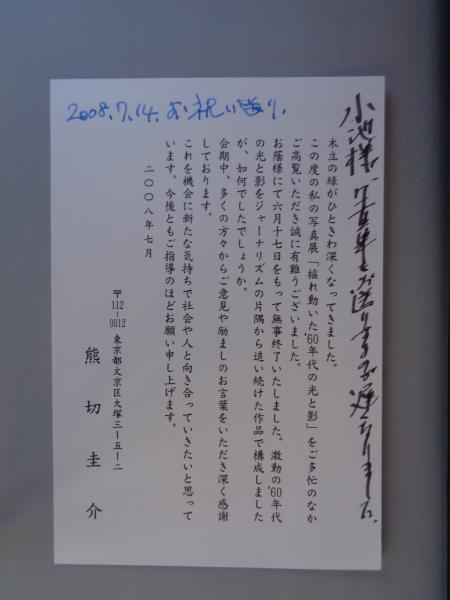 2008.7.14. お祝い送り.
小池様、写真集をお送りするのが遅くなりました。
木立の緑がひときわ深くなってきました。
この度の私の写真展「揺れ動いた'60年代の光と影」をご多忙のなか
ご高覧いただき誠に有難うございました。
お蔭様にて六月十七日をもって無事終了いたしました。激動の'60年代
の光と影をジャーナリズムの片隅から追い続けた作品で構成しました
が、如何でしたでしょうか。
会期中、多くの方々からご意見や励ましのお言葉をいただき深く感謝
しております。
これを機会に新たな気持ちで社会や人と向き合っていきたいと思って
います。今後ともご指導のほどお願い申し上げます。
二〇〇八年七月
〒112-0012 東京都文京区大塚三ー五ー二
熊切圭介